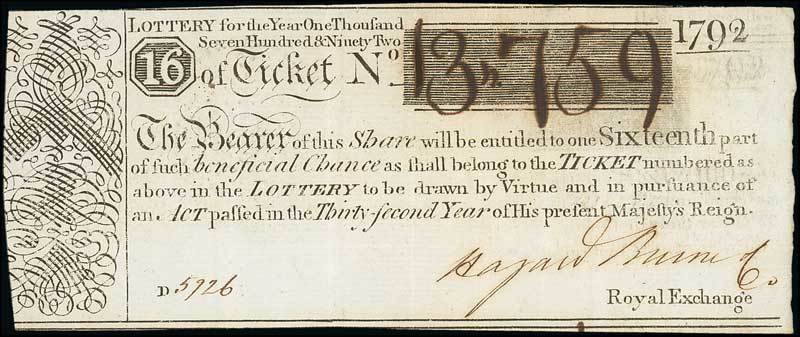 LOTTERY for the Year One Thousand
Seven Hundred & Ninety Two
1792
16 of Ticket No. 13,759
The Bearer of this Share will be entitled to one Sixteenth part
of ſuch beneficial Chance as ſhall belong to the TICKET numbered as
above in the LOTTERY to be drawn by Virtue and in purſuance of
an ACT paſſed in the Thirty-ſecond Year of His preſent Majeſty's Reign.
Hazard Burne & Co.
D 5926
Royal Exchange